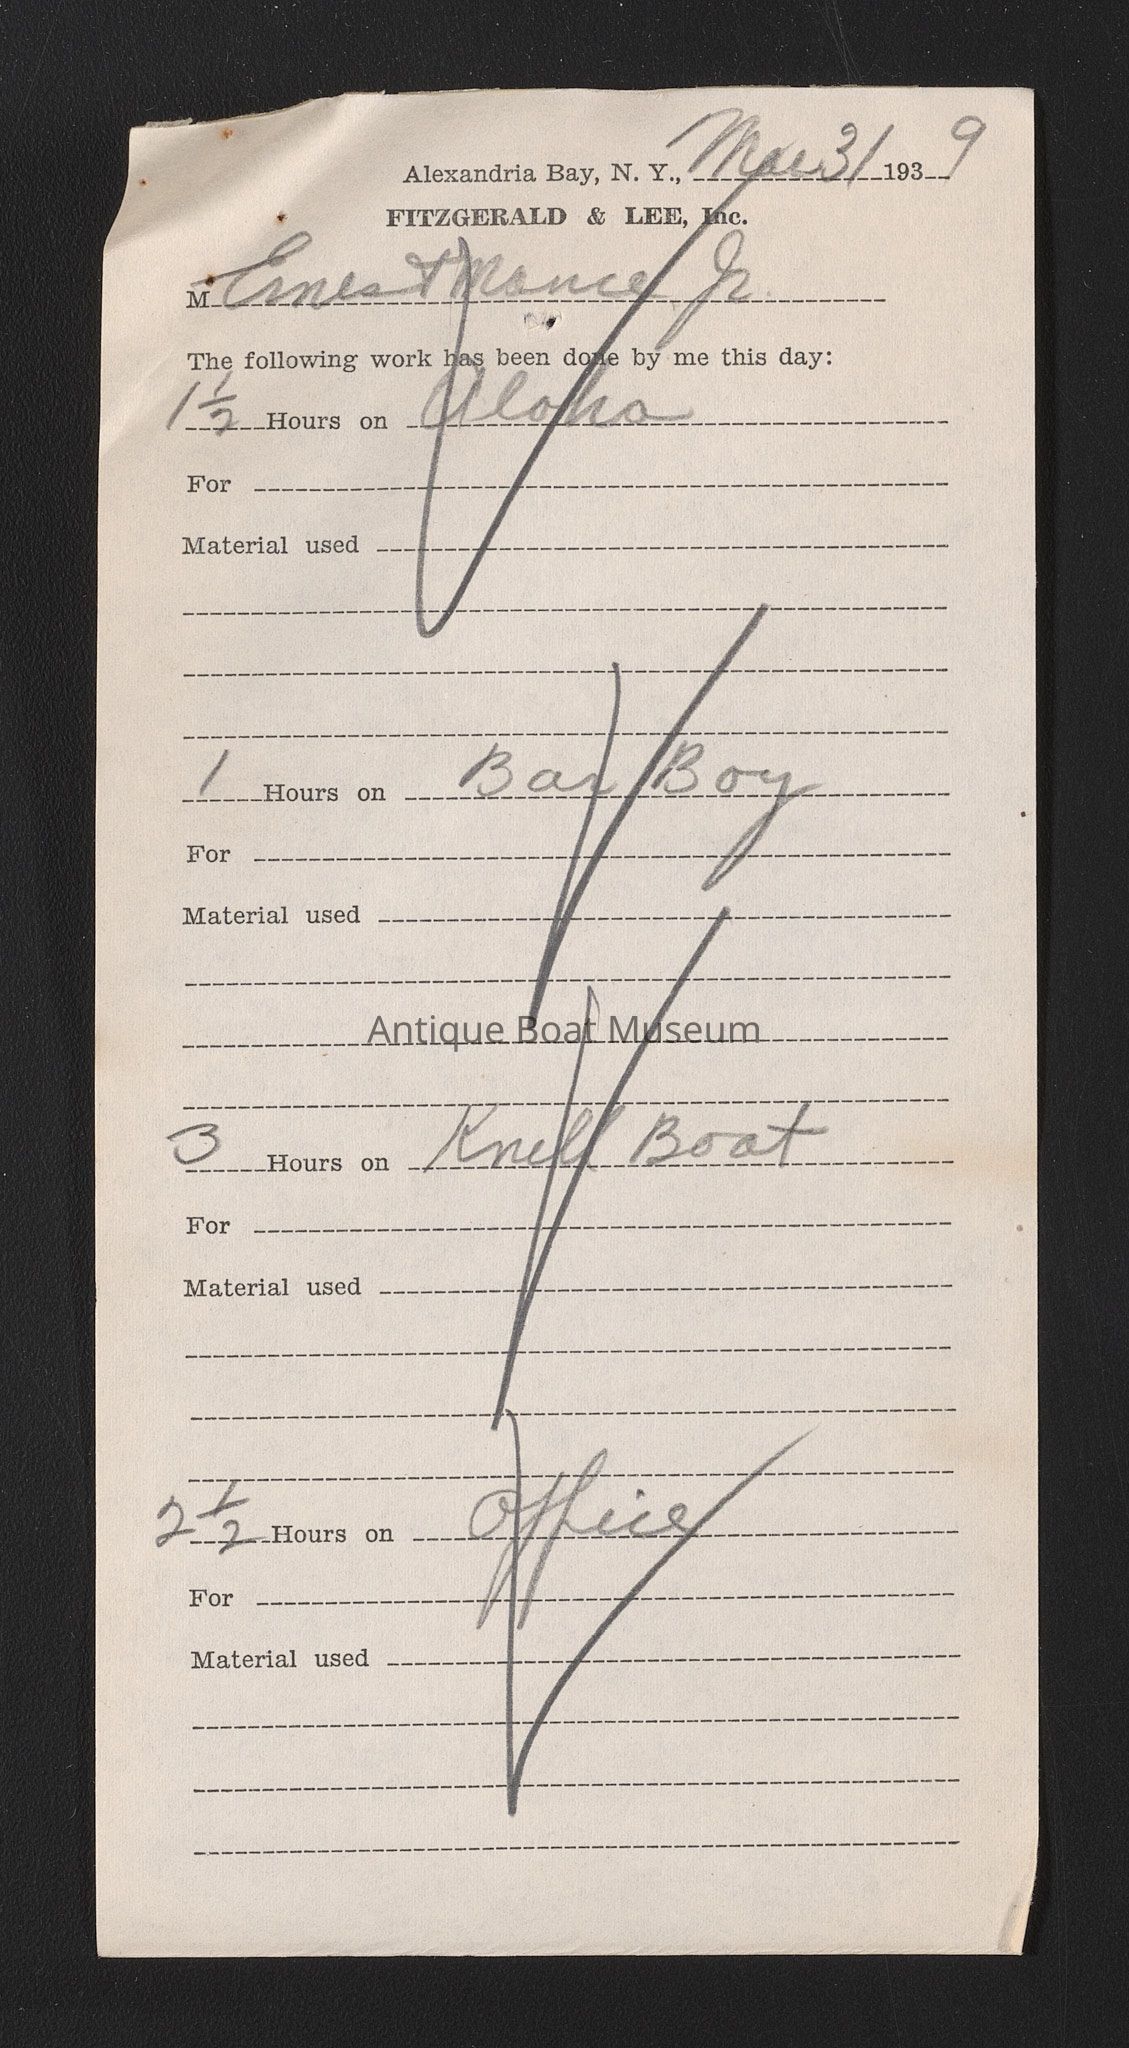 Alexandria Bay, N. Y., Mar 31 1939
FITZGERALD & LEE, Inc.
M Ernest Mance Jr.
The following work has been done by me this day:
1 1/2 Hours on Aloha
For
Material used
1 Hours on Bar Boy
For
Material used
Antique Boat Museum
3 Hours on Knell Boat
For
Material used
2 1/2 Hours on Office
For
Material used